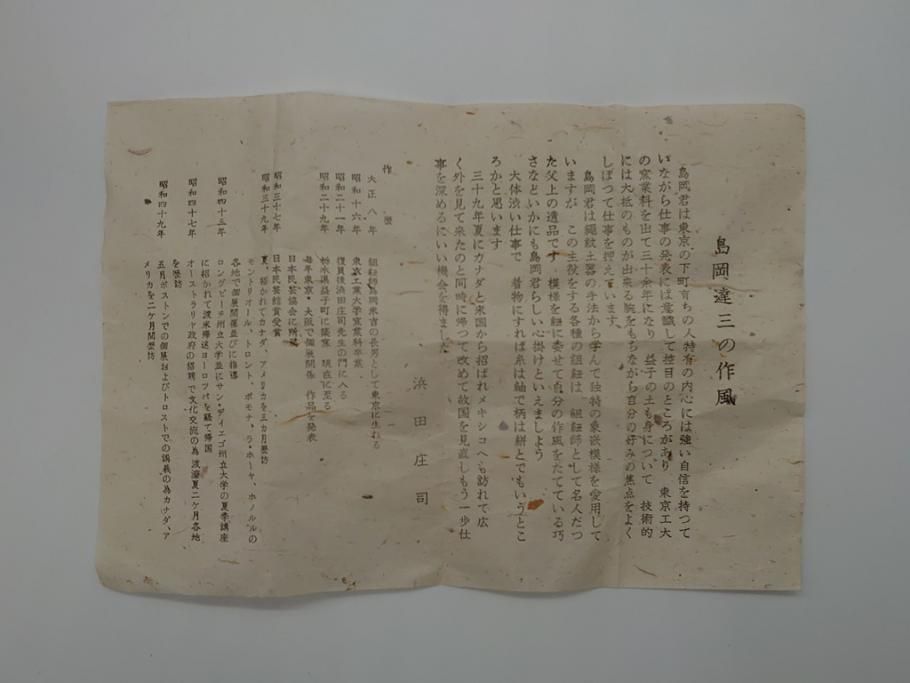 島岡達三の作風
島岡君は東京の下町育ちの人特有の内心には強い自信を持つて
いながら仕事の発表には意識して控目のところがあり 東京工大
の窯業科を出て三十余年になり 益子の土も身について 技術的
には大抵のものが出来る腕をもちながら自分の好みの焦点をよく
しぼつて仕事を押えています。
島岡君は縄紋土器の手法から学んで独特の象嵌模様を愛用して
いますが この主役をする各種の組紐は 組紐師として名人だつ
た父上の遺品です 模様を紐に委せて自分の作風をたてている巧
さなどいかにも島岡君らしい心掛けといえましよう
大体渋い仕事で 着物にすれば糸は紬で柄は絣とでもいうとこ
ろかと思います
三十九年夏にカナダと米国から招ばれメキシコへも訪れて広
く外を見て来たのと同時に帰つて改めて故国を見直しもう一歩仕
事を深めるにいい機会を得ました
浜田庄司
作歴
大正八年 組紐師島岡米吉の長男として東京に生れる
昭和十六年 東京工業大学窯業科卒業
昭和二十一年 復員後浜田庄司先生の門に入る
昭和二十九年 栃木県益子町に築窯 現在に至る
毎年東京・大阪で個展開催 作品を発表
日本民芸協会に所属
昭和三十七年 日本民芸館賞受賞
昭和三十九年 夏、招かれてカナダ、アメリカを三カ月歴訪
モントリオール、トロント、ポモナ、ラ・ホーヤ、ホノルルの
各地で個展開催並びに指導
昭和四十三年 ロングビーチ州立大学並にサン・デイエゴ州立大学の夏季講座
に招かれて渡米帰途ヨーロツパを経て帰国
昭和四十七年 オーストラリヤ政府の招聘で文化交流の為渡濠夏二ケ月各地
を歴訪
昭和四十九年 五月ボストンでの個展およびトロストでの講義の為カナダ、ア
メリカを二ケ月間歴訪